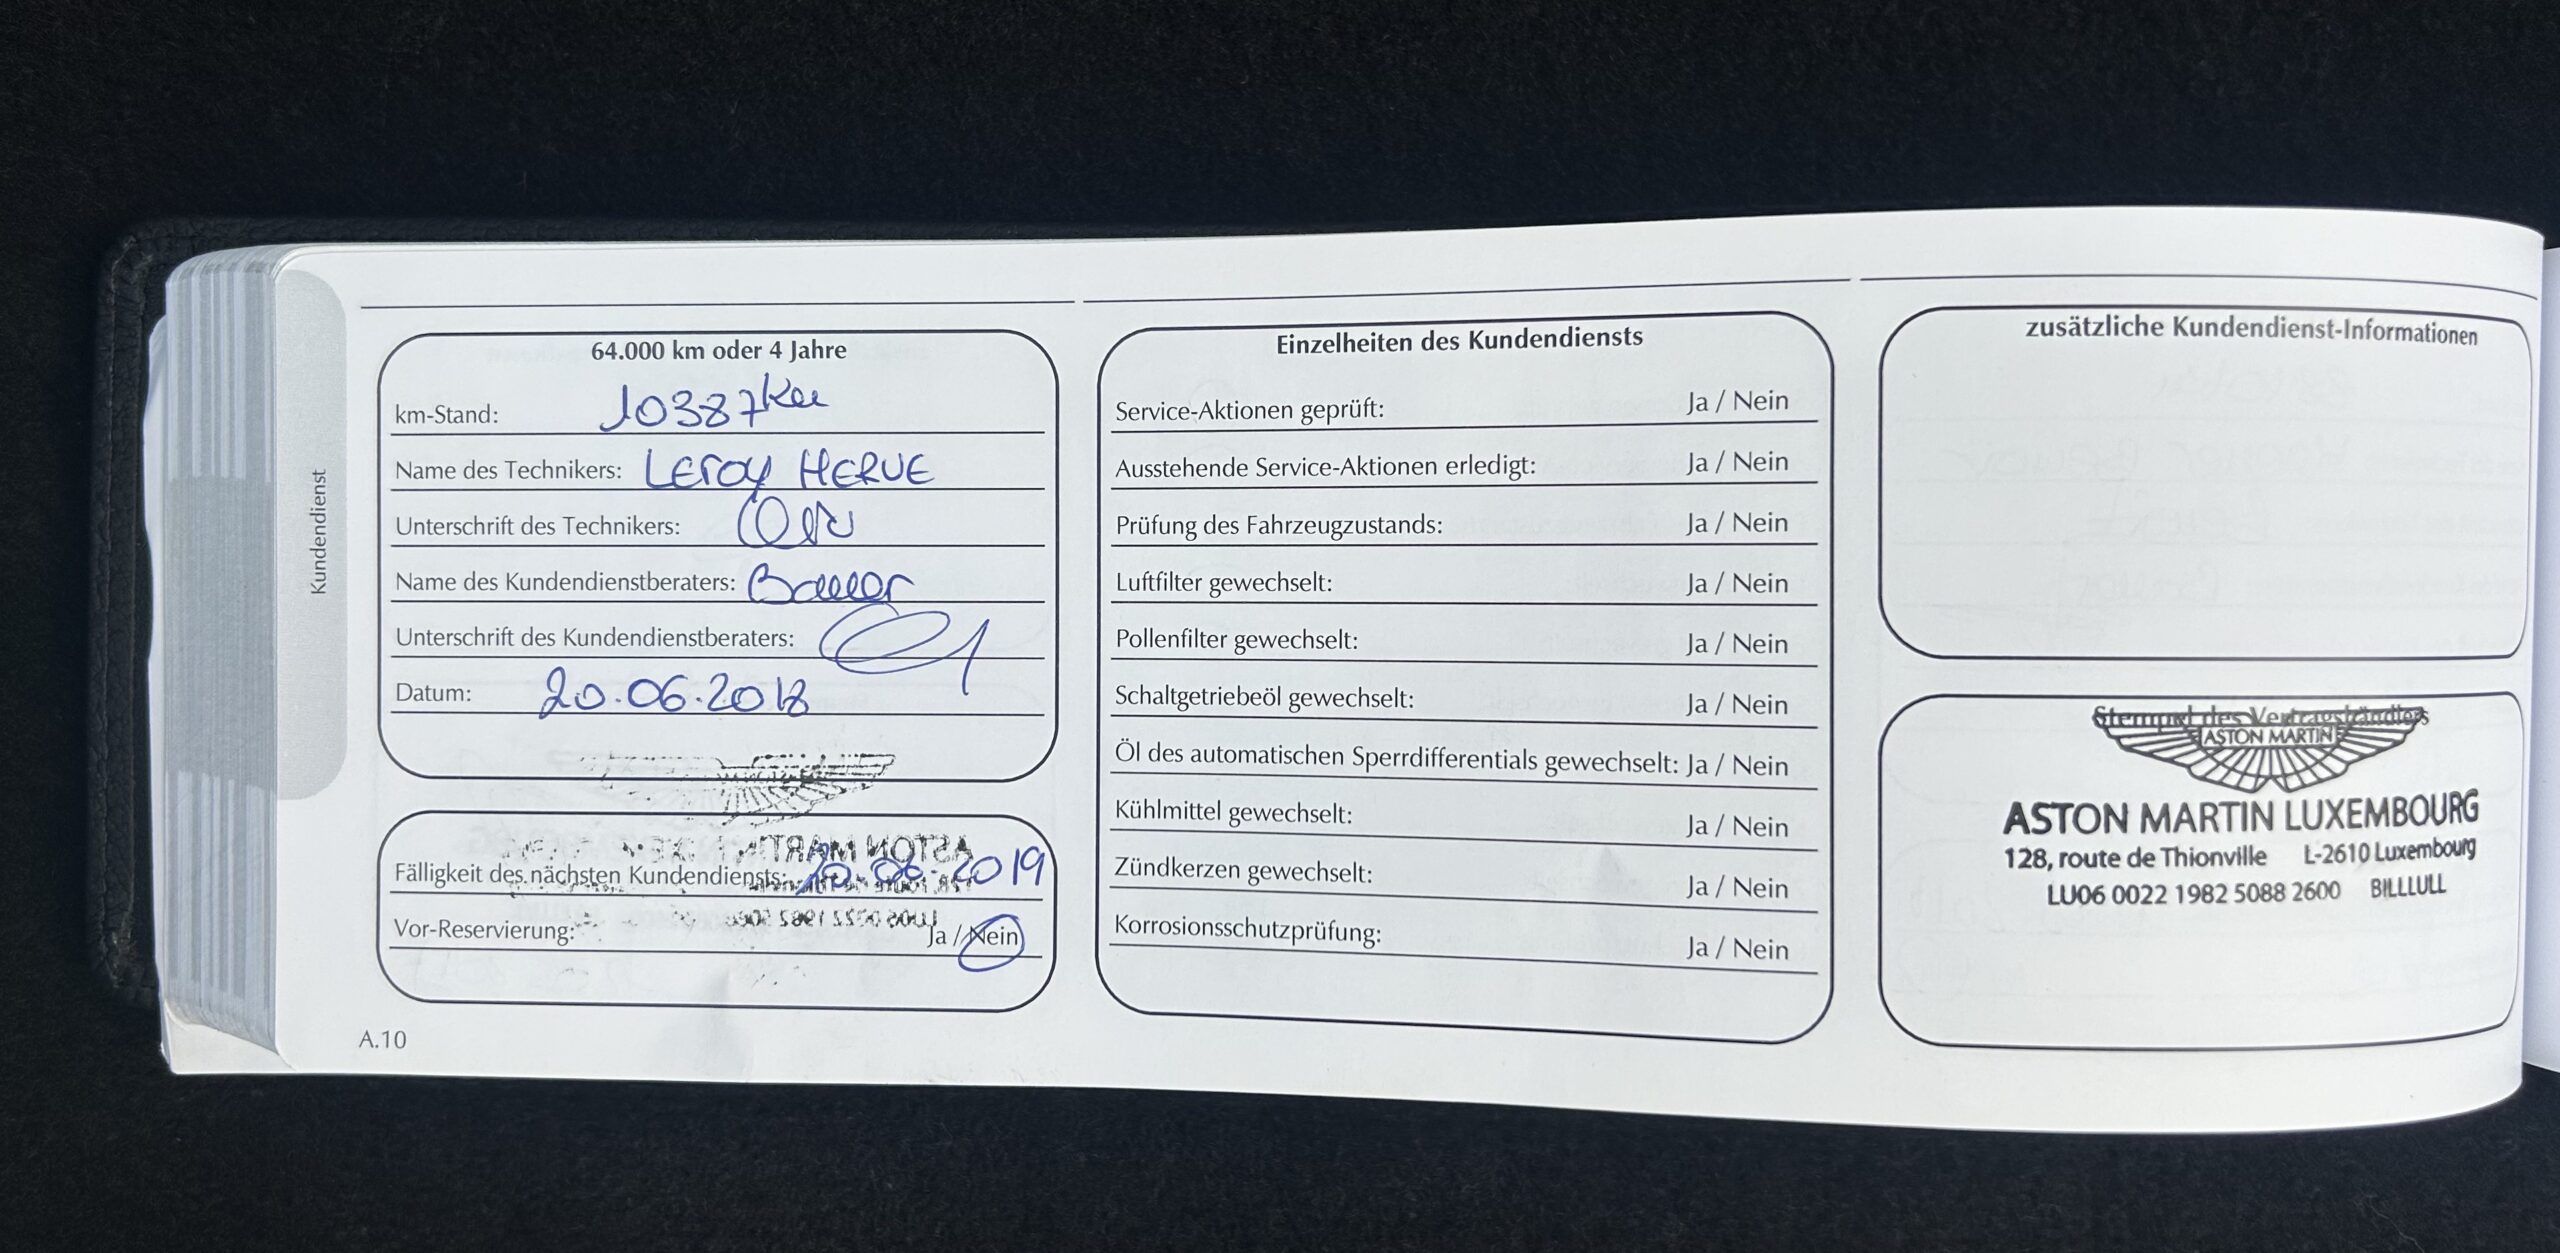 Kundendienst
64.000 km oder 4 Jahre
km-Stand: 10387 km
Name des Technikers: LEROY HERVE
Unterschrift des Technikers:
Name des Kundendienstberaters:
Unterschrift des Kundendienstberaters:
Datum: 20.06.2018
Fälligkeit des nächsten Kundendiensts: 20.06.2019
Vor-Reservierung: Ja / Nein
A.10
Einzelheiten des Kundendiensts
Service-Aktionen geprüft: Ja / Nein
Ausstehende Service-Aktionen erledigt: Ja / Nein
Prüfung des Fahrzeugzustands: Ja / Nein
Luftfilter gewechselt: Ja / Nein
Pollenfilter gewechselt: Ja / Nein
Schaltgetriebeöl gewechselt: Ja / Nein
Öl des automatischen Sperrdifferentials gewechselt: Ja / Nein
Kühlmittel gewechselt: Ja / Nein
Zündkerzen gewechselt: Ja / Nein
Korrosionsschutzprüfung: Ja / Nein
zusätzliche Kundendienst-Informationen
Stempel des Vertragshändlers
ASTON MARTIN
ASTON MARTIN LUXEMBOURG
128, route de Thionville L-2610 Luxembourg
LU06 0022 1982 5088 2600 BILLLULL